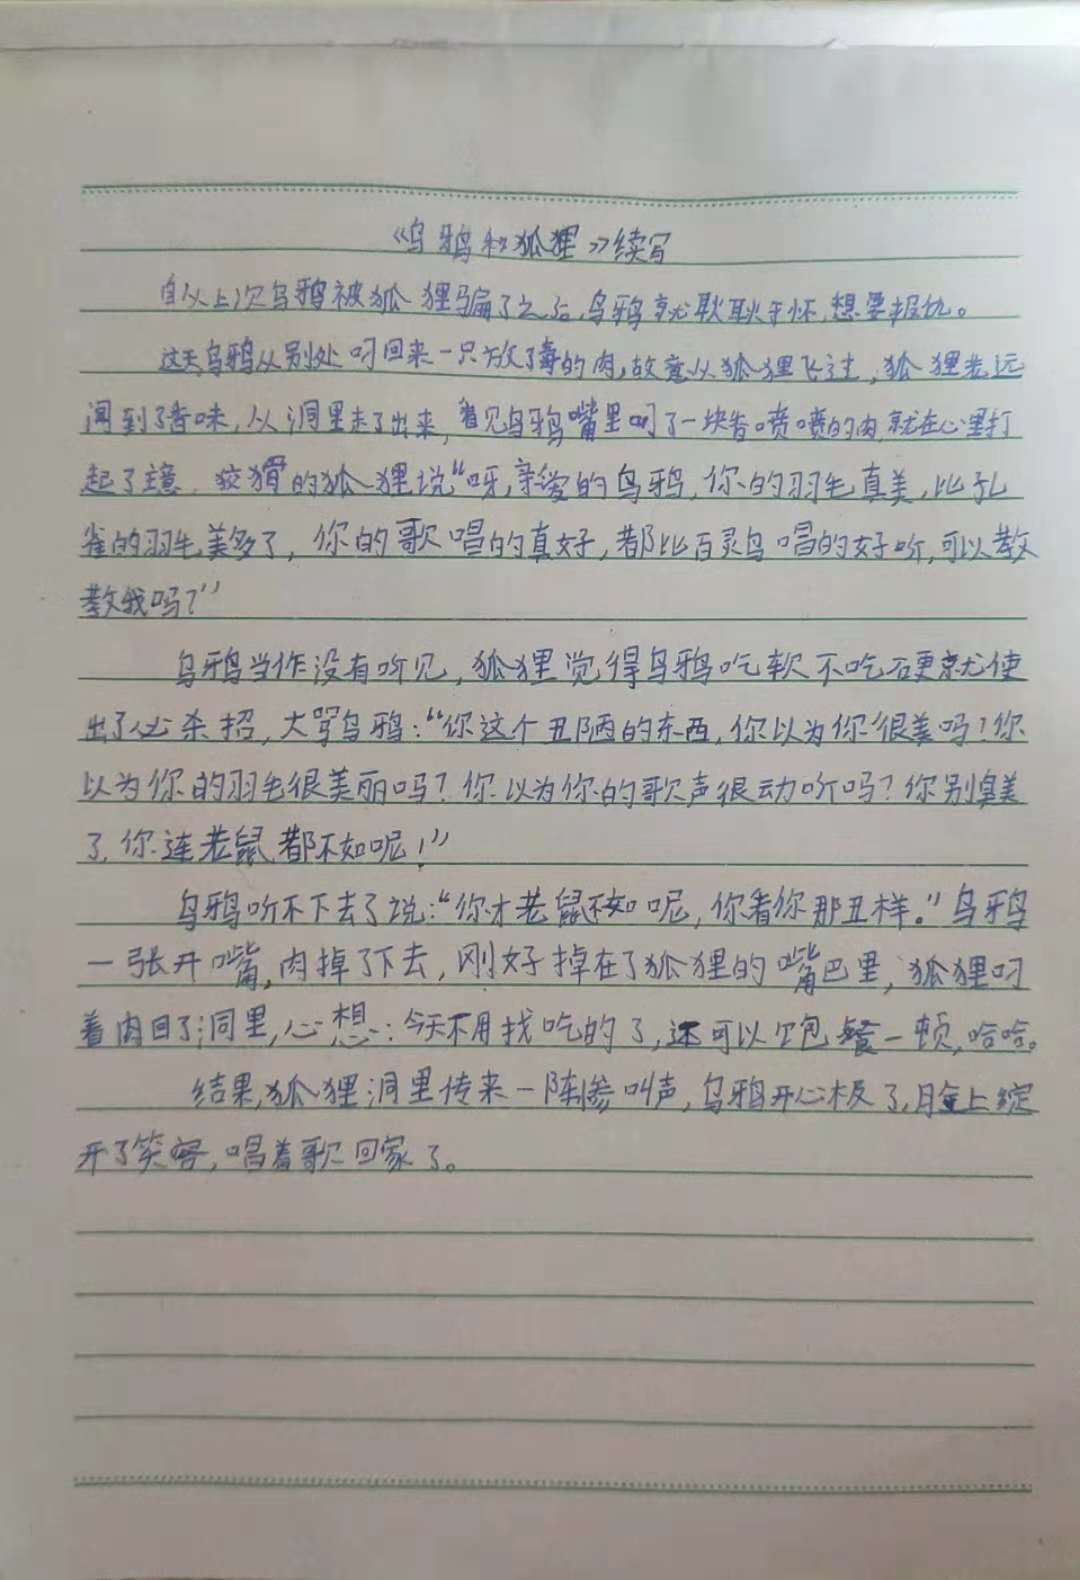 《乌鸦和狐狸》续写
自从上次乌鸦被狐狸骗了之后,乌鸦就耿耿于怀,想要报仇。
这天乌鸦从别处叼回来一只放了毒的肉,故意从狐狸飞过,狐狸老远
闻到了香味,从洞里走了出来,看见乌鸦嘴里叼了一块香喷喷的肉,就在心里打
起了主意.狡猾的狐狸说“呀,亲爱的乌鸦,你的羽毛真美,比孔
雀的羽毛美多了,你的歌唱的真好,都比百灵鸟唱的好听,可以教
教我吗?”
乌鸦当作没有听见,狐狸觉得乌鸦吃软不吃硬就使
出了必杀招,大骂乌鸦:“你这个丑陋的东西,你以为你很美吗!你
以为你的羽毛很美丽吗?你以为你的歌声很动听吗?你别臭美
了,你连老鼠都不如呢!”
乌鸦听不下去了说:“你才老鼠不如呢,你看你那丑样。”乌鸦
一张开嘴,肉掉了下去,刚好掉在了狐狸的嘴巴里,狐狸叼
着肉回了洞里,心想:今天不用找吃的了,还可以饱餐一顿,哈哈。
结果,狐狸洞里传来一阵惨叫声,乌鸦开心极了,脸上绽
开了笑容,唱着歌回家了。